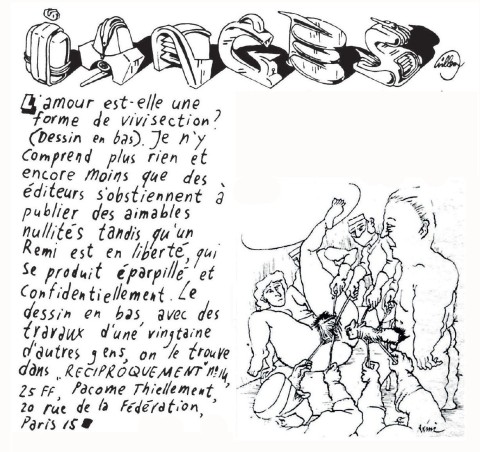 IMAGES
Willem
L'amour est-elle une
forme de vivisection?
(Dessin en bas). Je n'y
comprend plus rien et
encore moins que des
éditeurs s'obstiennent à
publier des aimables
nullités tandis qu'un
Remi est en liberté, qui
se produit éparpillé et
confidentiellement. Le
dessin en bas, avec des
travaux d'une vingtaine
d'autres gens, on le trouve
dans "RECIPROQUEMENT" n° 14,
25 FF, Pacome Thiellement,
20 rue de la Fédération,
Paris 15
Remi